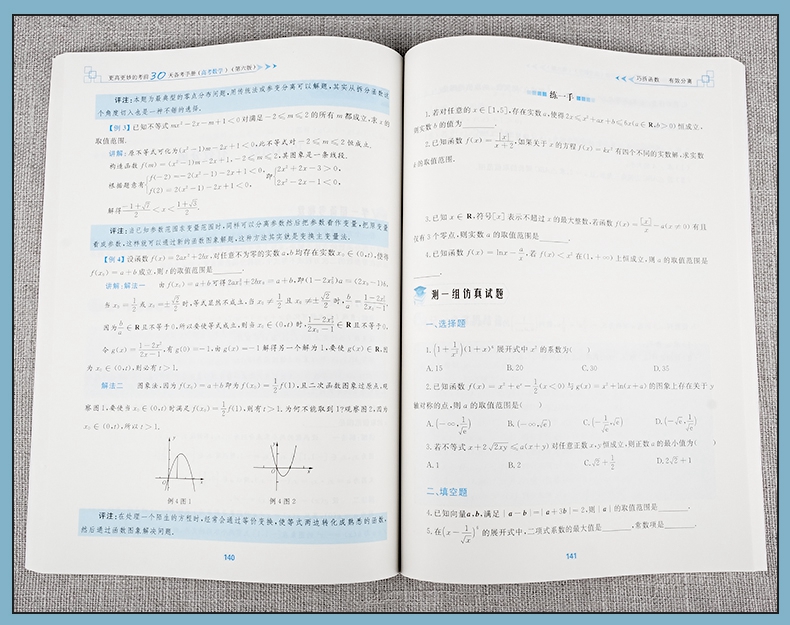 更高更妙的考前30天备考手册(高考数学)(第六版)
评注:本题为最典型的零点分布问题,用传统法或参变分离可以解题,其实从拆分函数这
个角度切入也是一种不错的选择.
【例3】已知不等式mx²-2x-m+1<0对满足-2≤m≤2的所有m都成立,求x的
取值范围.
讲解:原不等式可化为(x²-1)m-2x+1<0,此不等式对-2≤m≤2恒成立.
构造函数f(m)=(x²-1)m-2x+1,-2≤m≤2,其图象是一条线段.
根据题意有{f(-2)=-2(x²-1)-2x+1<0, f(2)=2(x²-1)-2x+1<0, 即{2x²+2x-3>0, 2x²-2x-1<0,
解得(-1+√7)/2<x<(1+√3)/2.
评注:当已知参数范围求变量范围时,同样可以分离参数然后把参数看作变量,把原变量
看成参数,这样就可以通过新的函数图象解题,这种方法其实就是变换主变量法.
【例4】设函数f(x)=2ax²+2bx,对任意不为零的实数a,b均存在实数x₀∈(0,t),使得
f(x₀)=a+b成立,则t的取值范围是______.
讲解:解法一 由f(x₀)=a+b可得2ax₀²+2bx₀=a+b,即(1-2x₀²)a=(2x₀-1)b,
当x₀=1/2或x₀=±√2/2时,等式显然不成立,当x₀≠1/2且x₀≠±√2/2时,b/a=(1-2x₀²)/(2x₀-1),
因为b/a∈R且不等于0,所以要使等式成立,则当x₀∈(0,t)时,(1-2x₀²)/(2x₀-1)∈R且不等于0.
令g(x)=(1-2x²)/(2x-1),有g(0)=-1,由g(x)=-1解得另一个解为1,要使g(x)∈R,因
为x₀∈(0,t),则必有t>1.
解法二 图象法,因为f(x₀)=a+b即为f(x₀)=1/2f(1),且二次函数图象过原点,观
察图1,要使当x₀∈(0,t)时满足f(x₀)=1/2f(1),则有t>1.为何不能取到1?观察图2,因为
x₀∈(0,t),所以t>1.
例4图1 例4图2
评注:在处理一个陌生的方程时,经常会通过等价变换,使等式两边转化成熟悉的函数,
然后通过函数图象解决问题.
140
巧拆函数 有效分离
练一手
1.若对任意的x∈[1,5],存在实数a,使得2x≤x²+ax+b≤6x(a∈R,b>0)恒成立,
则实数b的值为______.
2.已知函数f(x)=|x|/(x+2),如果关于x的方程f(x)=kx²有四个不同的实数解,求实数
k的取值范围.
3.已知x∈R,符号[x]表示不超过x的最大整数,若函数f(x)=[x]/x-a(x≠0)有且
仅有3个零点,则实数a的取值范围是______.
4.已知函数f(x)=lnx-a/x,若f(x)<x²在(1,+∞)上恒成立,则a的取值范围是
______.
测一组仿真试题
一、选择题
1.(1+1/x²)(1+x)⁶展开式中x²的系数为( )
A.15 B.20 C.30 D.35
2.已知函数f(x)=x²+eˣ-1/2(x<0)与g(x)=x²+ln(x+a)的图象上存在关于y
轴对称的点,则a的取值范围是( )
A.(-∞,1/√e) B.(-∞,√e) C.(-1/√e,√e) D.(-√e,1/√e)
3.若不等式x+2√2xy≤a(x+y)对任意正数x,y恒成立,则正数a的最小值为( )
A.1 B.2 C.√2+1/2 D.2√2+1
二、填空题
4.已知向量a,b,满足|a-b|=|a+3b|=2,则|a|的取值范围是______.
5.在(x-1/√x)⁶的展开式中,二项式系数的最大值是______,常数项是______.
141